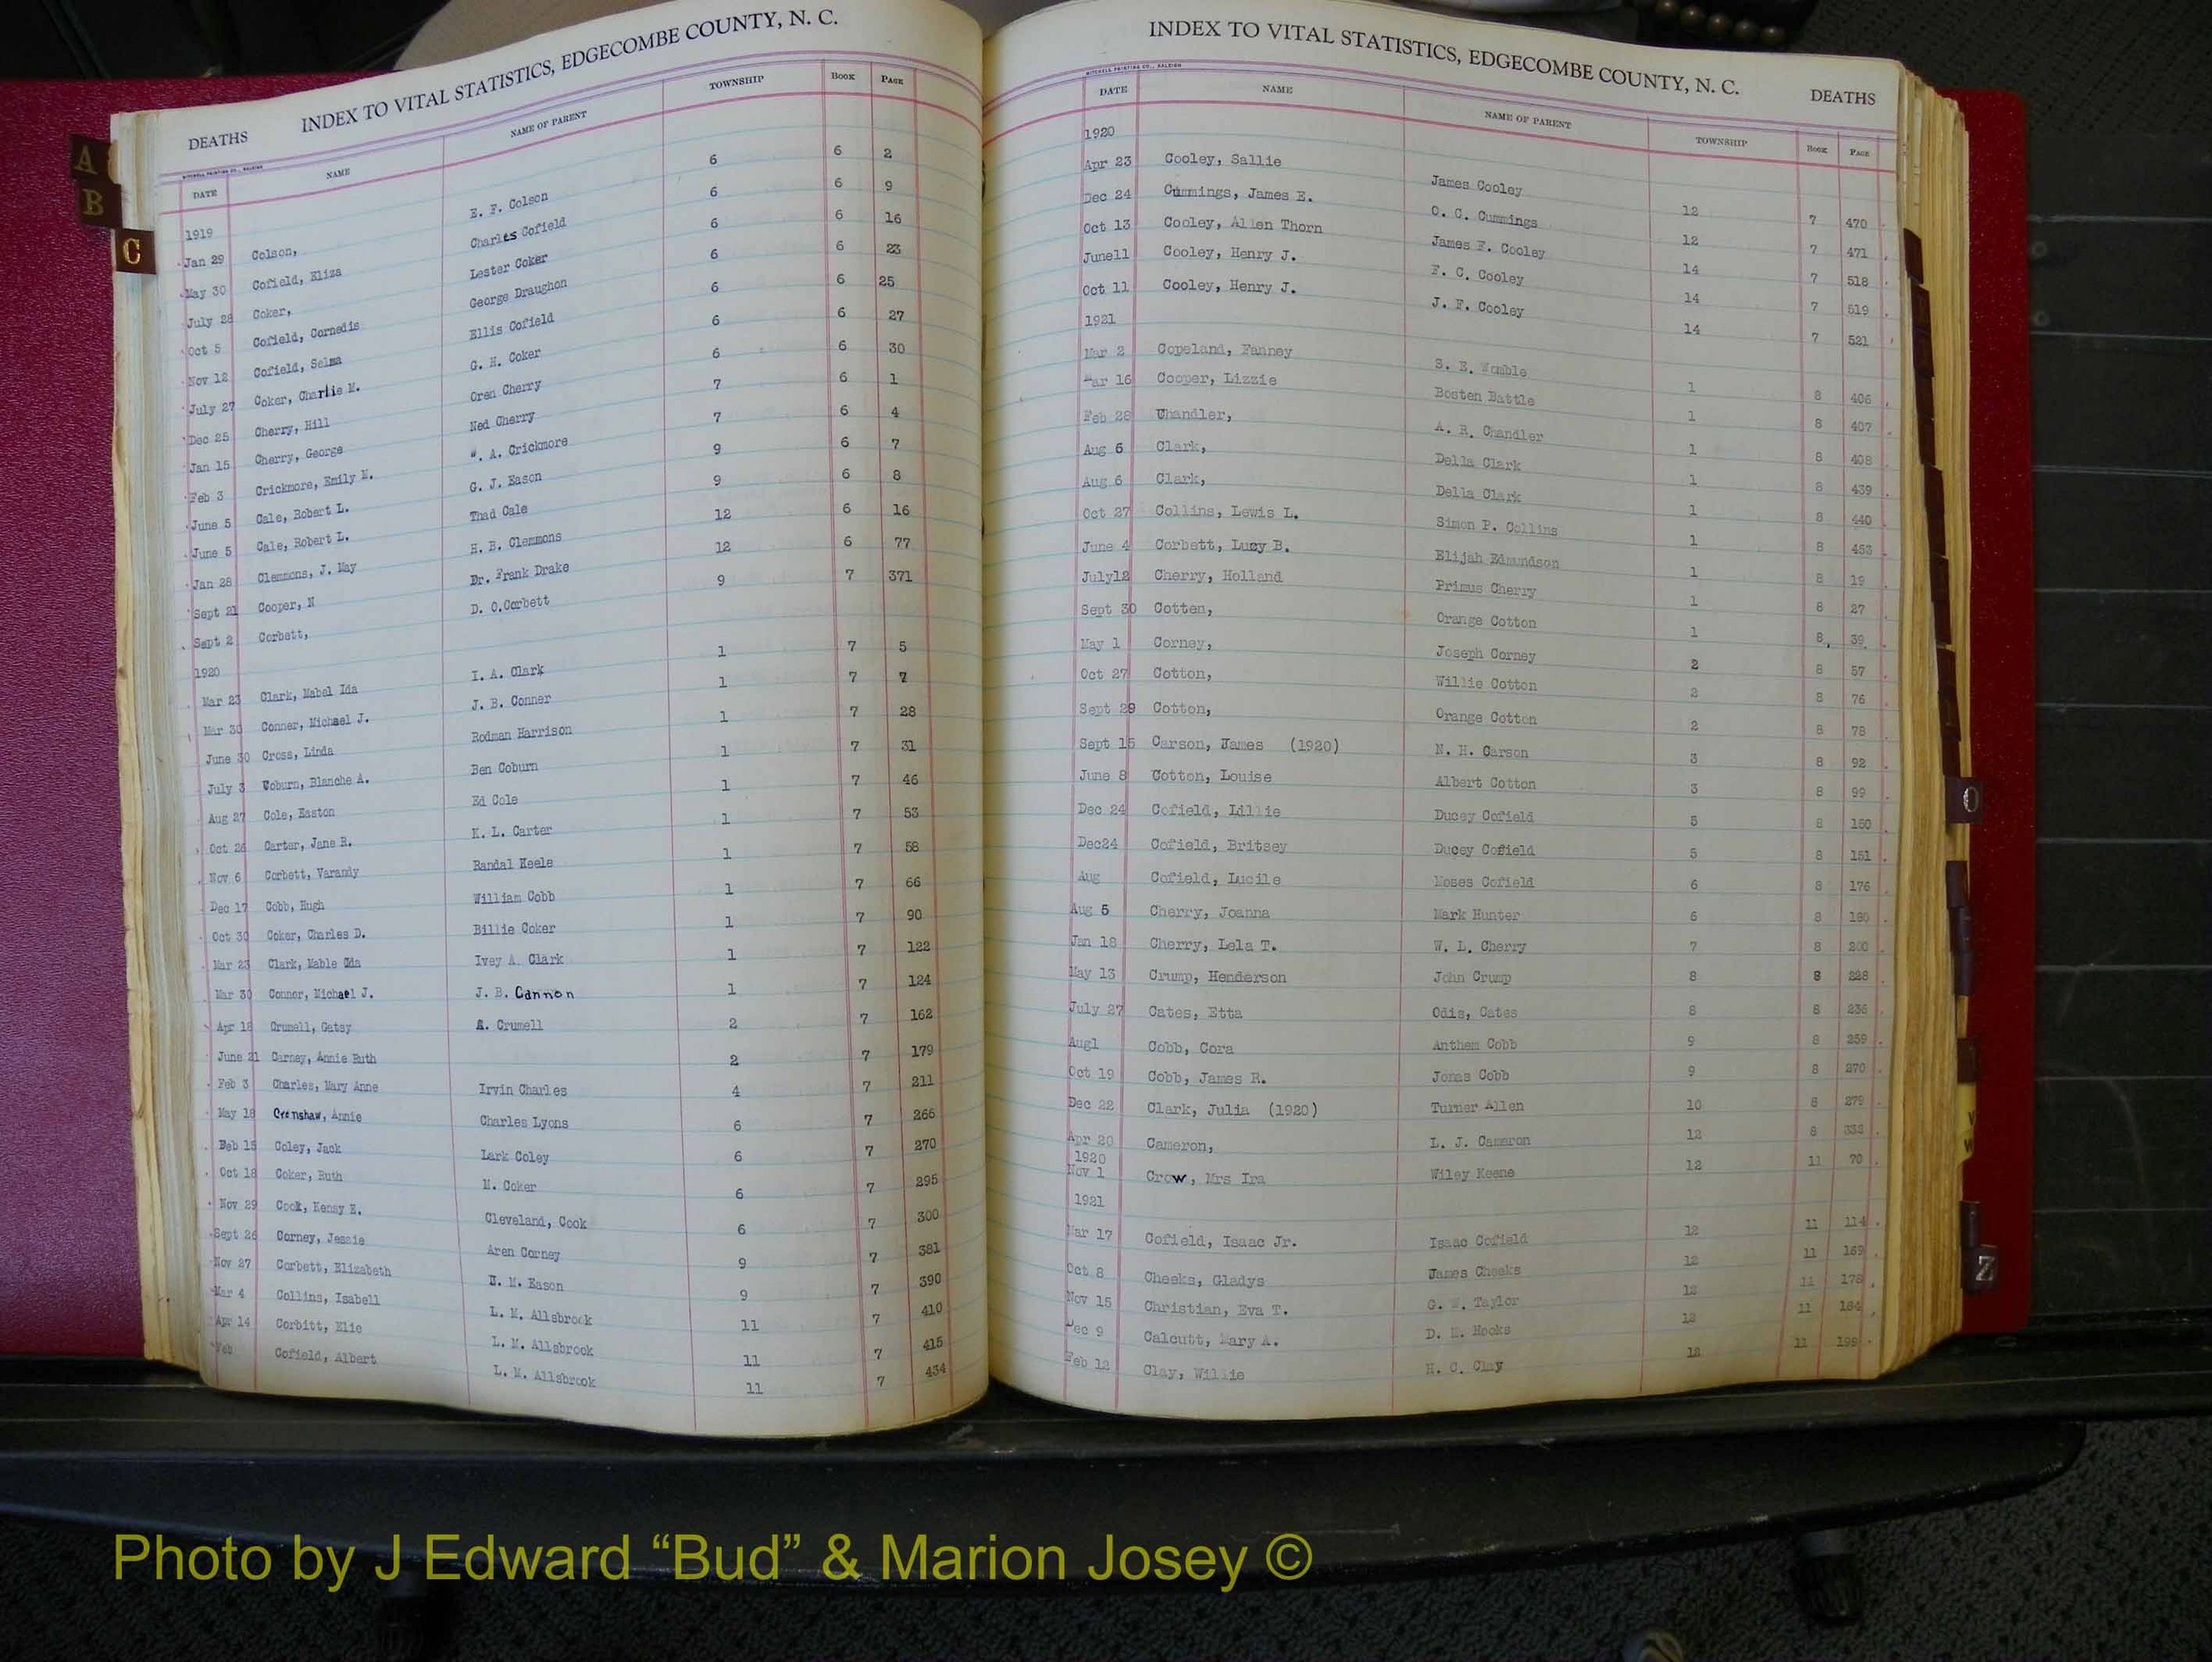 INDEX TO VITAL STATISTICS, EDGECOMBE COUNTY, N. C.
DEATHS
MITCHELL PRINTING CO., RALEIGH
DATE NAME NAME OF PARENT TOWNSHIP BOOK PAGE
1919
Jan 29 Colson, E. F. Colson 6 6 2
May 30 Cofield, Eliza Charles Cofield 6 6 9
July 28 Coker, Lester Coker 6 6 16
Oct 5 Cofield, Cornedis George Draughon 6 6 23
Nov 12 Cofield, Selma Ellis Cofield 6 6 25
July 27 Coker, Charlie M. G. H. Coker 6 6 27
Dec 25 Cherry, Hill Oren Cherry 6 6 30
Jan 15 Cherry, George Ned Cherry 7 6 1
Feb 3 Crickmore, Emily M. W. A. Crickmore 7 6 4
June 5 Cale, Robert L. G. J. Eason 9 6 7
June 5 Cale, Robert L. Thad Cale 9 6 8
Jan 28 Clemmons, J. May H. B. Clemmons 12 6 16
Sept 21 Cooper, N Dr. Frank Drake 12 6 77
Sept 2 Corbett, D. O.Corbett 9 7 371
1920
Mar 23 Clark, Mabel Ida I. A. Clark 1 7 5
Mar 30 Conner, Michael J. J. B. Conner 1 7 7
June 30 Cross, Linda Rodman Harrison 1 7 28
July 3 Coburn, Blanche A. Ben Coburn 1 7 31
Aug 27 Cole, Easton Ed Cole 1 7 46
Oct 26 Carter, Jane R. K. L. Carter 1 7 53
Nov 6 Corbett, Varandy Randal Keele 1 7 58
Dec 17 Cobb, Hugh William Cobb 1 7 66
Oct 30 Coker, Charles D. Billie Coker 1 7 90
Mar 23 Clark, Mable Ida Ivey A. Clark 1 7 122
Mar 30 Connor, Michael J. J. B. Cannon 1 7 124
Apr 18 Crumell, Gatsy A. Crumell 2 7 162
June 21 Carney, Annie Ruth 2 7 179
Feb 3 Charles, Mary Anne Irvin Charles 4 7 211
May 18 Crenshaw, Annie Charles Lyons 6 7 266
Feb 15 Coley, Jack Lark Coley 6 7 270
Oct 18 Coker, Ruth M. Coker 6 7 295
Nov 29 Cook, Kensy E. Cleveland, Cook 6 7 300
Sept 26 Corney, Jessie Aren Corney 9 7 381
Nov 27 Corbett, Elizabeth J. M. Eason 9 7 390
Mar 4 Collins, Isabell L. M. Allsbrook 11 7 410
Apr 14 Corbitt, Elie L. M. Allsbrook 11 7 415
Feb Cofield, Albert L. M. Allsbrook 11 7 434
INDEX TO VITAL STATISTICS, EDGECOMBE COUNTY, N. C.
DEATHS
MITCHELL PRINTING CO., RALEIGH
DATE NAME NAME OF PARENT TOWNSHIP BOOK PAGE
1920
Apr 23 Cooley, Sallie James Cooley 12 7 470
Dec 24 Cummings, James E. O. C. Cummings 12 7 471
Oct 13 Cooley, Allen Thorn James F. Cooley 14 7 518
June11 Cooley, Henry J. F. C. Cooley 14 7 519
Oct 11 Cooley, Henry J. J. F. Cooley 14 7 521
1921
Mar 2 Copeland, Fanney S. E. Womble 1 8 406
Mar 16 Cooper, Lizzie Bosten Battle 1 8 407
Feb 28 Chandler, A. R. Chandler 1 8 408
Aug 6 Clark, Della Clark 1 8 439
Aug 6 Clark, Della Clark 1 8 440
Oct 27 Collins, Lewis L. Simon P. Collins 1 8 453
June 4 Corbett, Lucy B. Elijah Edmundson 1 8 19
July12 Cherry, Holland Primus Cherry 1 8 27
Sept 30 Cotten, Orange Cotton 1 8 39
May 1 Corney, Joseph Corney 2 8 57
Oct 27 Cotton, Willie Cotton 2 8 76
Sept 29 Cotton, Orange Cotton 2 8 78
Sept 15 Carson, James (1920) N. H. Carson 3 8 92
June 8 Cotton, Louise Albert Cotton 3 8 99
Dec 24 Cofield, Lillie Ducey Cofield 5 8 150
Dec24 Cofield, Britsey Ducey Cofield 5 8 151
Aug Cofield, Lucile Moses Cofield 6 8 176
Aug 5 Cherry, Joanna Mark Hunter 6 8 180
Jan 18 Cherry, Lela T. W. L. Cherry 7 8 200
May 13 Crump, Henderson John Crump 8 8 228
July 27 Cates, Etta Odis, Cates 8 8 236
Aug1 Cobb, Cora Anthem Cobb 9 8 259
Oct 19 Cobb, James R. Jonas Cobb 9 8 270
Dec 22 Clark, Julia (1920) Turner Allen 10 8 279
Apr 20 Cameron, L. J. Cameron 12 8 332
1920
Nov 1 Crow, Mrs Ira Wiley Keene 12 11 70
1921
Mar 17 Cofield, Isaac Jr. Isaac Cofield 12 11 114
Oct 8 Cheeks, Gladys James Cheeks 12 11 169
Nov 15 Christian, Eva T. G. W. Taylor 12 11 178
Dec 9 Calcutt, Mary A. D. M. Hooks 12 11 184
Feb 12 Clay, Willie H. C. Clay 12 11 199
A
B
C
O
V
W
Z
Photo by J Edward “Bud” & Marion Josey ©